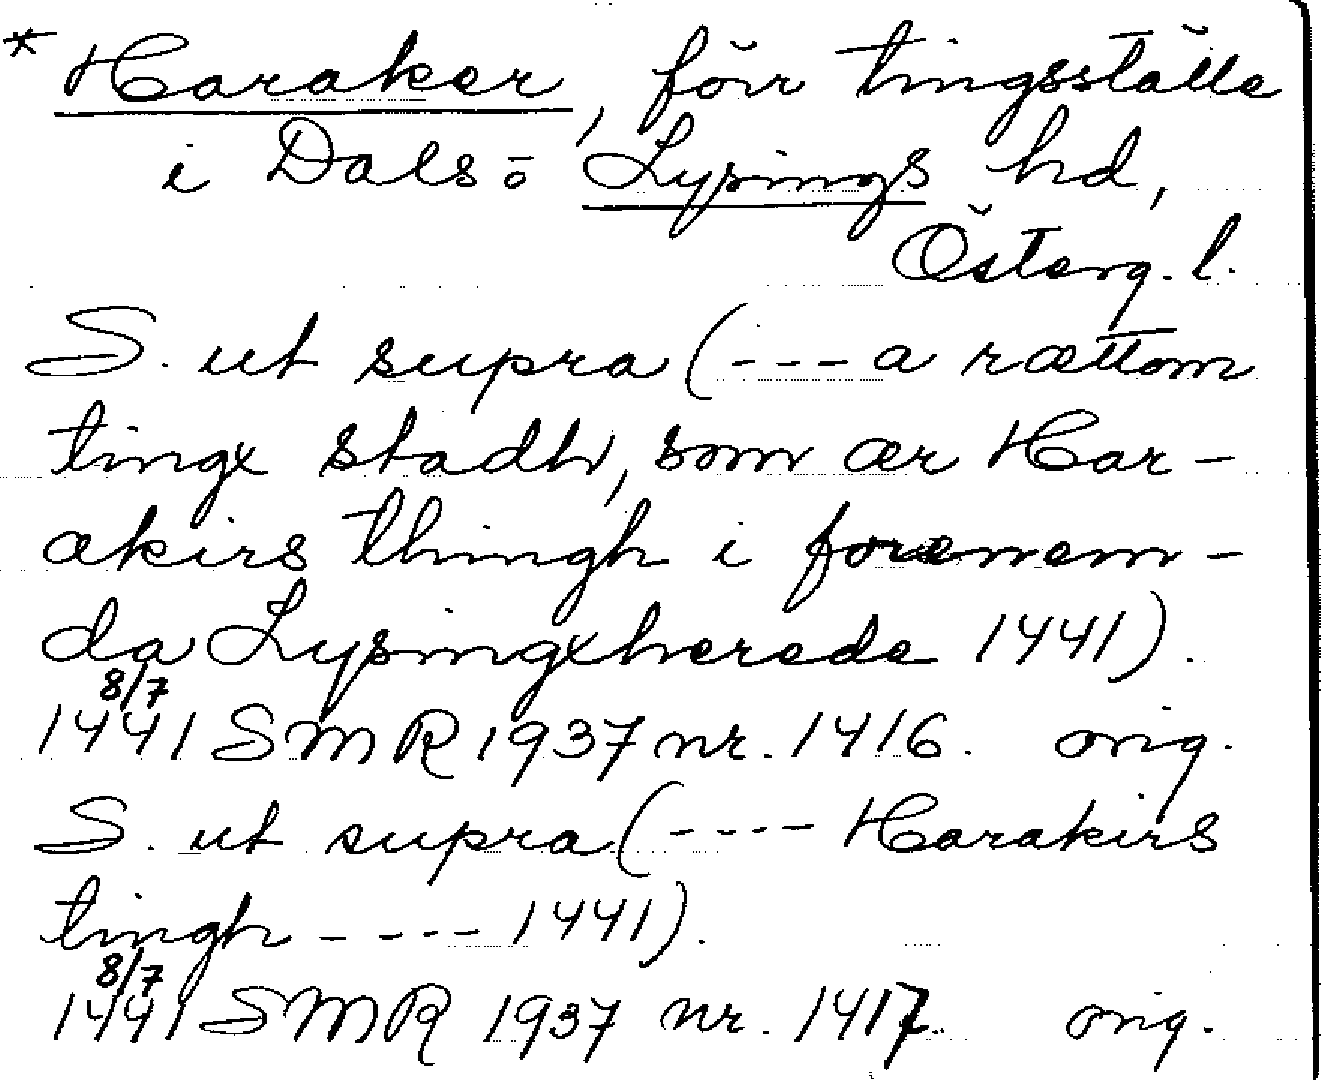 * Haraker, förr tingsställe
i Dals- o Lysings hd,
Österg. l.
S. ut supra (--- a rættom
tingx stadh, som ær Har-
akirs thingh i forenem-
da Lysingxherede 1441).
1441 8/7 SMR 1937 nr. 1416. orig.
S. ut supra (---- Harakirs
tingh ---- 1441).
1441 8/7 SMR 1937 nr. 1417. orig.